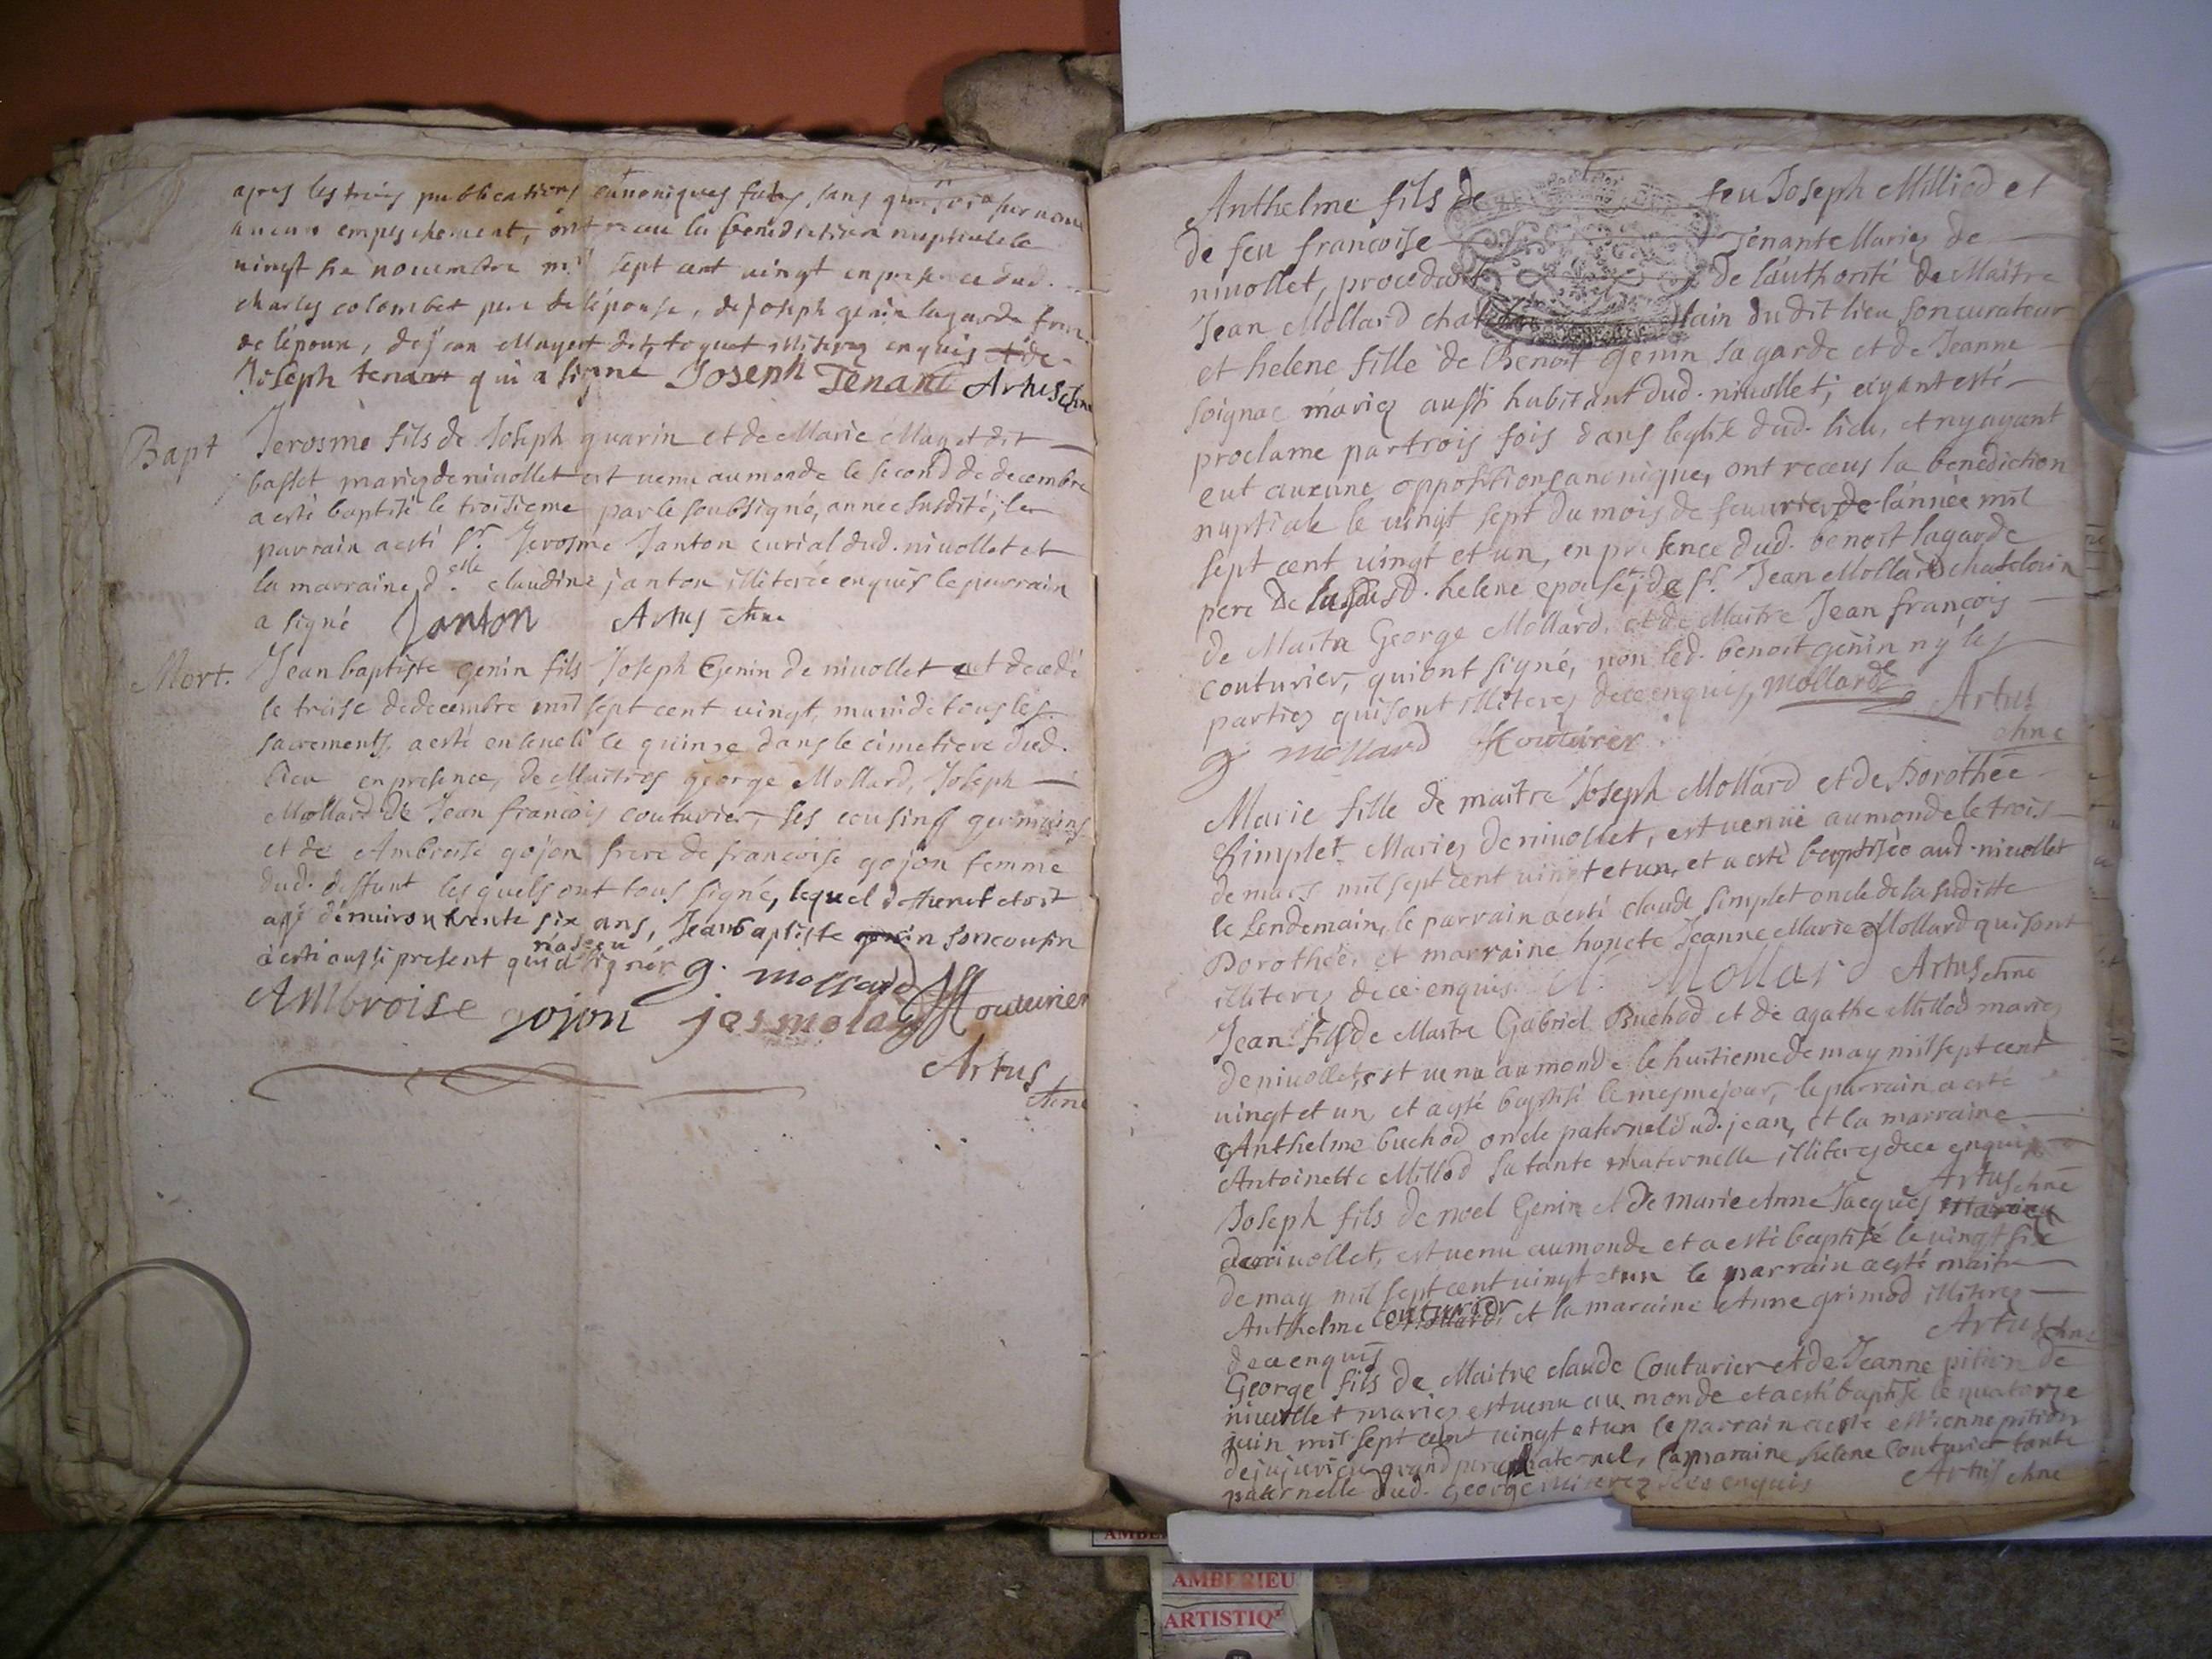 apres les trois publications canoniques faites, sans qu'il soit survenu
aucun empeschement, ont receu la benediction nuptiale le
vingt six novembre mil sept cent vingt en presence dud.
charles colombet pere de l'épouse, de joseph genin lagarde
de l'époux, de jean Mugert dit toquet illiterez enquis et de
Joseph tenant qui a signe Joseph TENANT Artus chne
Bapt
Jerosme fils de Joseph quarin et de Marie Maget dit
basset mariez de nivollet est venu au monde le second de decembre
a esté baptisé le troisieme par le soubsigné, année susdite, le
parrain a esté Sr. Jerosme Janton curial dud. nivollet et
la marraine d.elle claudine janton illiterée enquis le parrain
a signé Janton Artus chne
Mort.
Jean baptiste genin fils Joseph Genin de nivollet est decedé
le treise de decembre mil sept cent vingt, muni de tous les
sacrements, a esté enseveli le quinze dans le cimetiere dud.
lieu en presence, de Maitres george Mollard, Joseph
Mollard de Jean françois couturier, ses cousins germains
et de Ambroise gojon frere de francoise gojon femme
dud. deffunt lesquels ont tous signé, lequel deffunt etoit
agé d'environ trente six ans, Jean baptiste genin son cousin
a esté aussi present qui n'a sceu signer g. mollard JfCouturier
Ambroise gojon jos molar
Artus
chne
Anthelme fils de feu Joseph Milliod et
de feu francoise Tenant Mariez de
nivollet, procedant de l'authorité de Maitre
Jean Mollard chatelain du dit lieu son curateur
et helene fille de Benoit genin lagarde et de Jeanne
soignac mariez aussi habitant dud. nivollet, ayant esté
proclame par trois fois dans leglise dud. lieu, et ny ayant
eut aucune opposition canonique, ont receus la benediction
nuptiale le vingt sept du mois de feuvrier de l'année mil
sept cent vingt et un, en presence dud. benoit lagarde
pere de lasusd. helene epouse, de Sr. Jean Mollard chatelain
de Maitre George Mollard, et de Maitre Jean françois
couturier, qui ont signé, non led. benoit genin ny les
parties qui sont illiteres dece enquis, mollard Artus
g mollard JfCouturier chne
Marie fille de maitre Joseph Mollard et de Dorothée
simplet Mariez de nivollet, est venüe au monde le trois
de mars mil sept cent vingt et un, et a esté baptisée aud. nivollet
le Lendemain, le parrain a esté claude simplet oncle de la susditte
Dorothée, et marraine honete Jeanne Marie Mollard qui sont
illiterez dece enquis Mollard Artus chne
Jean fils de Maitre Gabriel Buchod et de agathe Millod mariez
de nivollet, est venu au monde le huitieme de may mil sept cent
vingt et un, et a esté baptisé le mesme jour, le parrain a esté
Anthelme buchod oncle paternel dud. jean, et la marraine
Antoinette Millod sa tante maternelle illiterez dece enquis
Artus chne
Joseph fils de noel Genin et de marie Anne Jacques mariez
de nivollet, est venu au monde et a esté baptisé le vingt six
de may mil sept cent vingt et un le parrain a esté maitre
Anthelme Couturier et la maraine Anne grimod illiterez
dece enquis Artus chne
George fils de Maitre claude Couturier et de Jeanne pition de
nivollet mariez est venu au monde et a esté baptisé le quatorze
juin mil sept cent vingt et un le parrain a esté estienne pition
de jujurieu grand pere maternel, la maraine helene Couturier tante
paternelle dud. George illiterez dece enquis Artus chne
AMBERIEU
ARTISTIQ